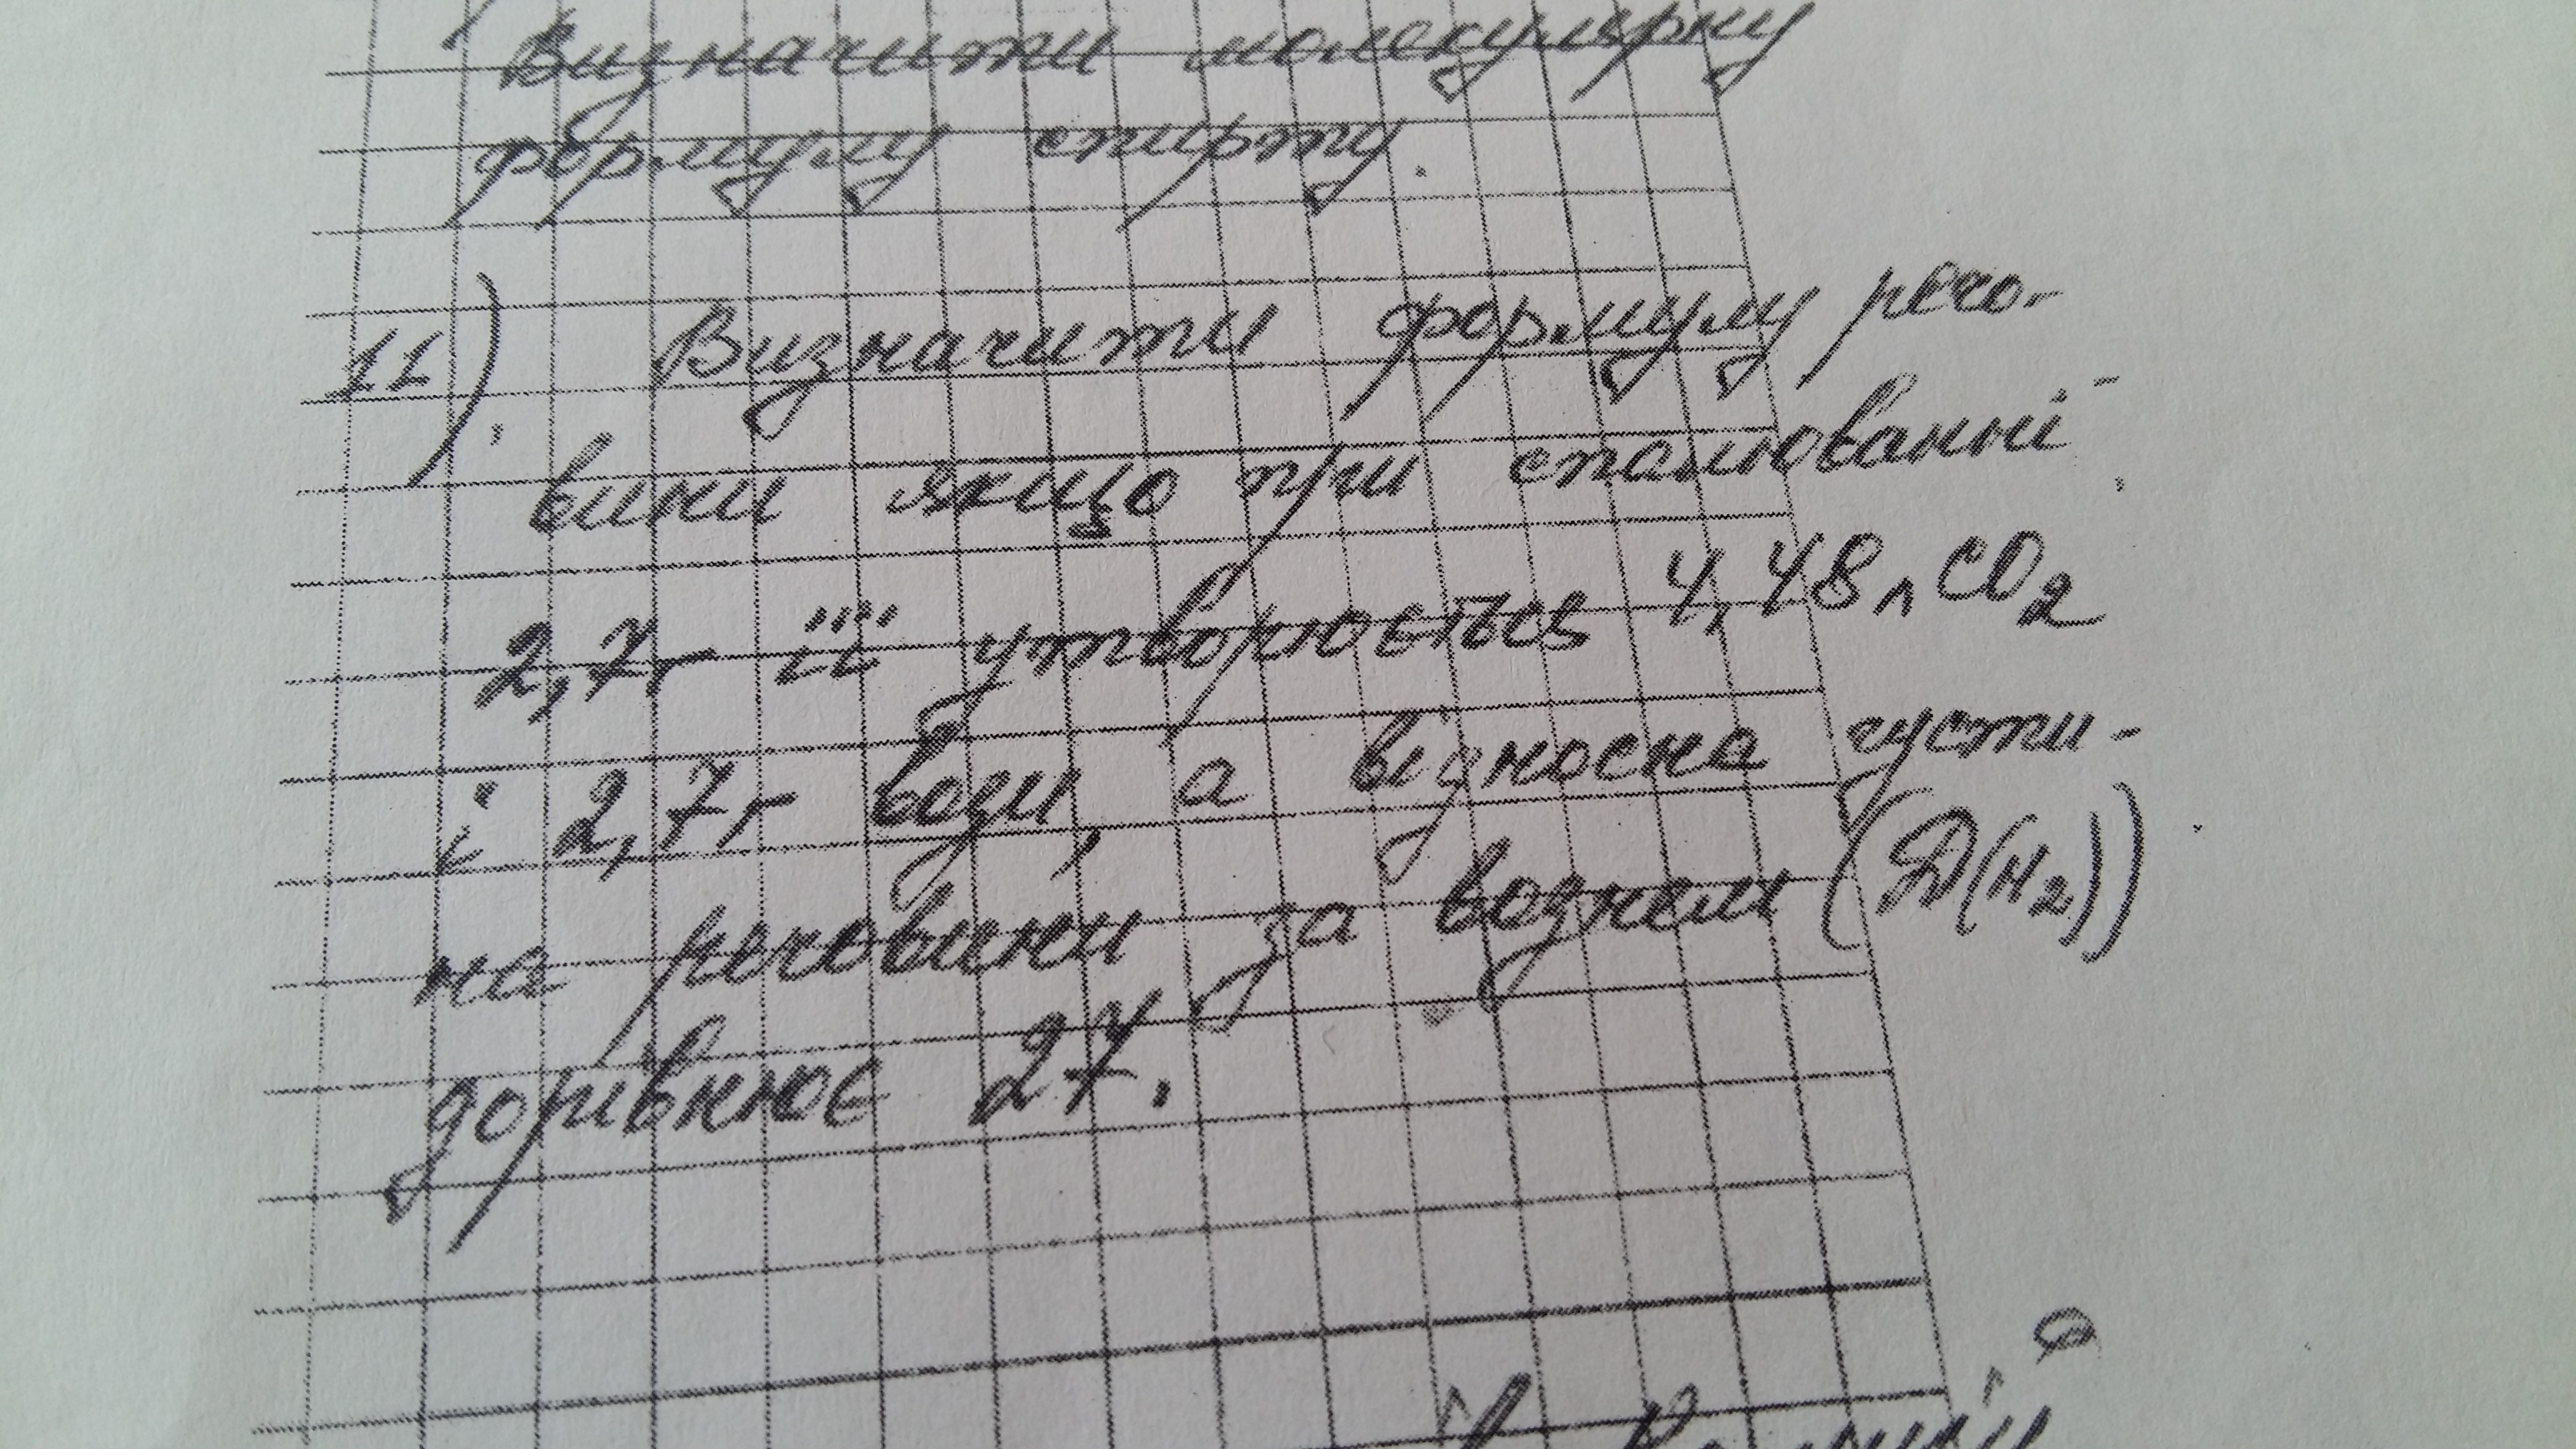 Визначити молекулярну
формулу спирту.
11) Визначити формулу речо-
вини якщо при спалюванні
2,7г її утворюється 4,48л CO2
і 2,7г води, а відносна густи-
на речовини за воднем (D(H2))
дорівнює 27.